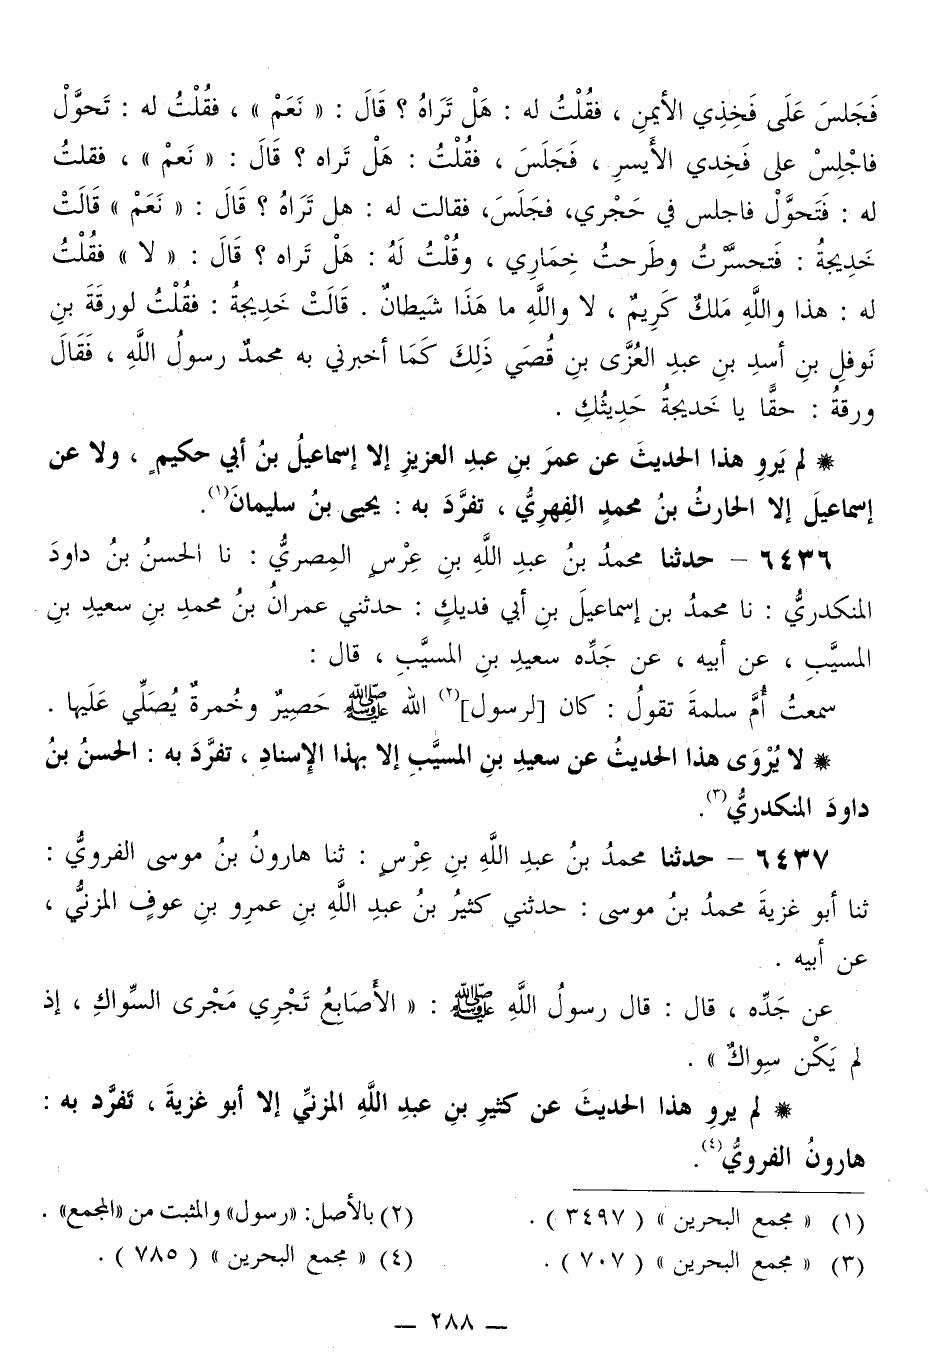 فَجَلسَ عَلَى فَخِذِي الأيمنِ ، فقُلْتُ له : هَلْ تَرَاهُ ؟ قَالَ : « نَعَمْ » ، فقُلْتُ له : تَحوَّلْ
فاجْلِسْ على فَخِدي الأَيسرِ ، فَجَلَسَ ، فقُلْتُ : هَلْ تَراه ؟ قَالَ : « نَعمْ » ، فقلتُ
له : فَتَحوَّلْ فاجلس في حَجْري، فجَلسَ، فقالت له : هل تَرَاهُ ؟ قَالَ : « نَعَمْ » قَالَتْ
خَدِيجةُ : فَتحسَّرْتُ وطَرحتُ خِمَارِي ، وقُلْتُ لَهُ : هَلْ تَراه ؟ قَالَ : « لا » فقُلْتُ
له : هذا واللَّهِ مَلكٌ كَرِيمٌ ، لا واللَّهِ ما هَذَا شَيطانٌ . قَالَتْ خَدِيجةُ : فقُلْتُ لورقَةَ بنِ
نَوفلِ بنِ أسدِ بنِ عبدِ العُزَّى بنِ قُصَي ذَلِكَ كَمَا أخبرني به محمدٌ رسولُ اللَّهِ ، فَقَالَ
ورقةُ : حقًّا يا خَديجةُ حَدِيثُكِ .
* لم يَروِ هذا الحديثَ عن عمرَ بنِ عبدِ العزيزِ إلا إسماعيلُ بنُ أبي حكيمٍ ، ولا عن
إسماعيلَ إلا الحارثُ بنُ محمدٍ الفِهرِيُّ ، تفرَّدَ به : يحيى بنُ سليمانَ(١).
٦٤٣٦ – حدثنا محمدُ بنُ عبدِ اللَّهِ بنِ عِرْسٍ المِصريُّ : نا الحسنُ بنُ داودَ
المنكدريُّ : نا محمدُ بن إسماعيلَ بنِ أبي فديكٍ : حدثني عمرانُ بنُ محمدِ بنِ سعيدِ بنِ
المسيَّبِ ، عن أبيه ، عن جَدِّه سعيدِ بنِ المسيَّبِ ، قال :
سمعتُ أُمَّ سلمةَ تقولُ : كان [لرسول](٢) الله ﷺ حَصِيرٌ وخُمرةٌ يُصَلِّي عَلَيها .
* لا يُرْوَى هذا الحديثُ عن سعيدِ بنِ المسيَّبِ إلا بهذا الإسنادِ ، تفرَّدَ به : الحسنُ بنُ
داودَ المنكدريُّ(٣).
٦٤٣٧ – حدثنا محمدُ بنُ عبدِ اللَّهِ بنِ عِرْسٍ : ثنا هارونُ بنُ موسى الفرويُّ :
ثنا أبو غزيةَ محمدُ بنُ موسى : حدثني كثيرُ بنُ عبدِ اللَّهِ بنِ عمرِو بنِ عوفٍ المزنيُّ ،
عن أبيه .
عن جَدِّه ، قال : قال رسولُ اللَّهِ ﷺ : « الأَصَابِعُ تَجْرِي مَجْرى السِّواكِ ، إذ
لم يَكْن سِواكٌ » .
* لم يروِ هذا الحديثَ عن كثيرِ بنِ عبدِ اللَّهِ المزنيِّ إلا أبو غزيةَ ، تَفرَّد به :
هارونُ الفرويُّ(٤).
(١) « مجمع البحرين » ( ٣٤٩٧ ) . (٢) بالأصل: «رسول» والمثبت من «المجمع» .
(٣) « مجمع البحرين » ( ٧٠٧ ) . (٤) « مجمع البحرين » ( ٧٨٥ ) .
— ٢٨٨ —